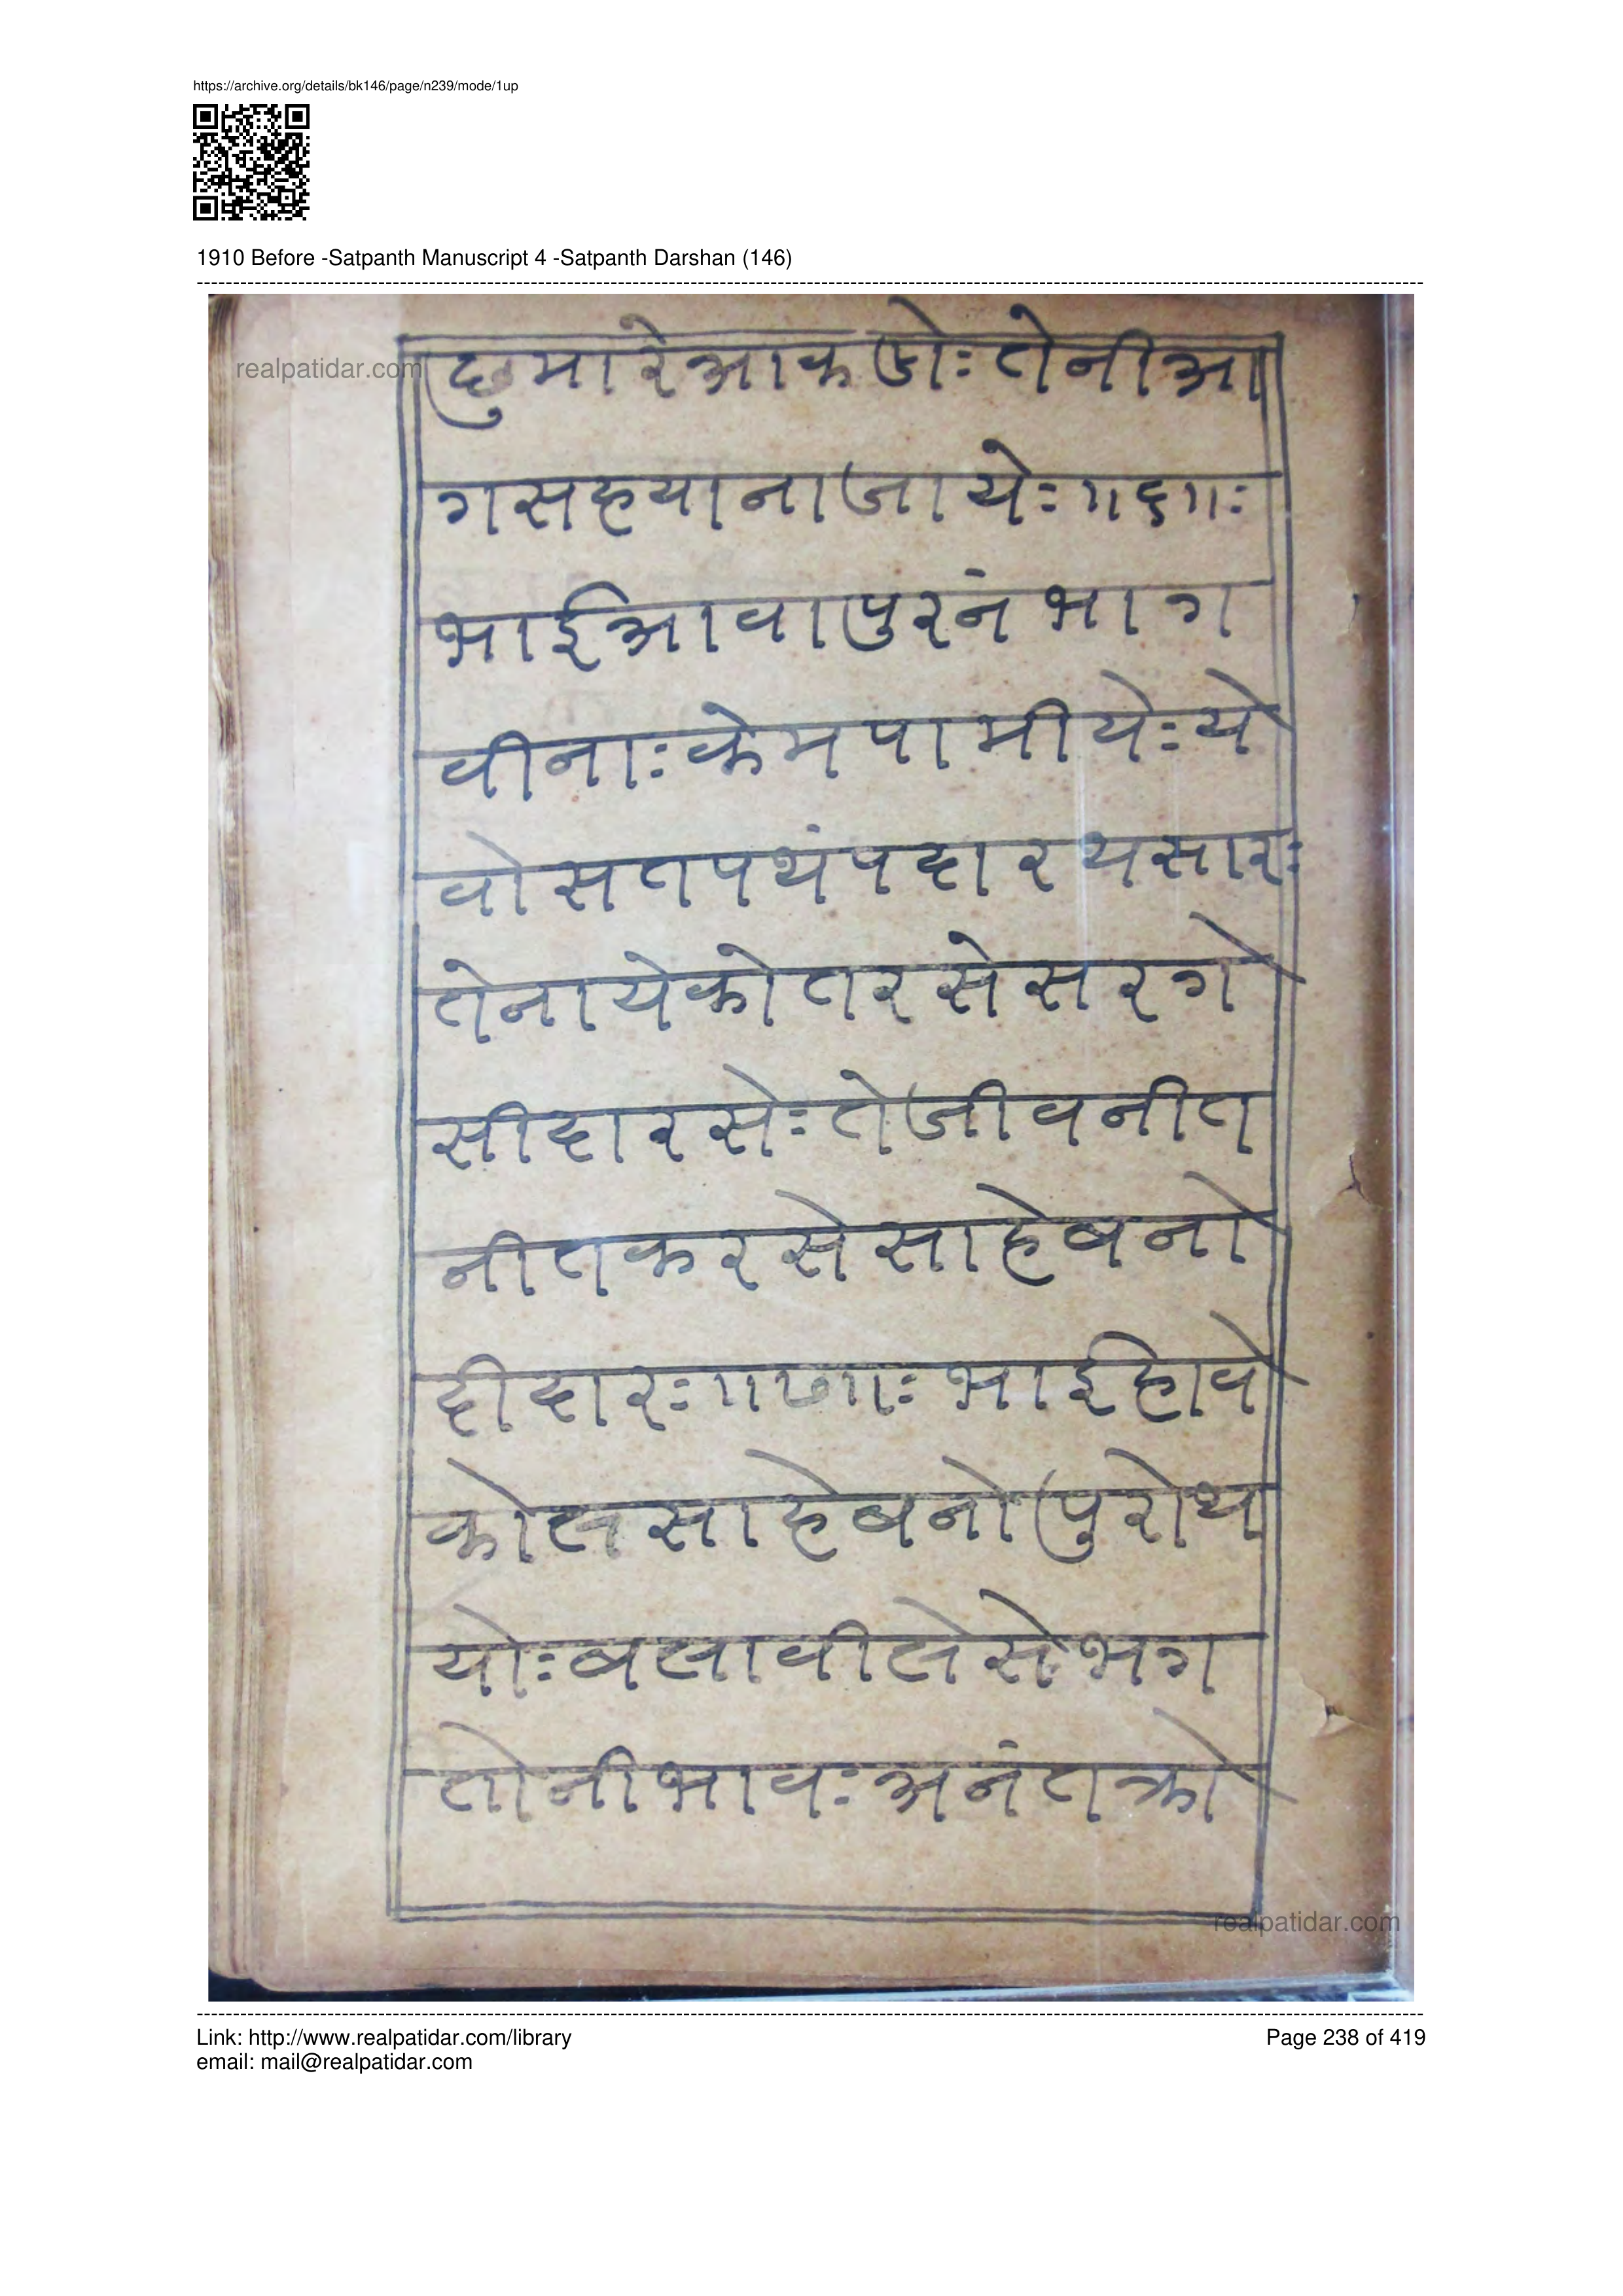 https://archive.org/details/bk146/page/n239/mode/1up
1910 Before -Satpanth Manuscript 4 -Satpanth Darshan (146)
realpatidar.com
छुमारेआकजेः तेनीआ
गसहयानाजायेः ॥६॥ः
भाईआवापुरनं भाग
वीनाः केमपामीयेः ये
वोसतपथंपदारथसारः
तेनायेकोतरसेसरगे
सीदारसेः तेजीवनीत
नीतकरसेसाहेबनो
दीदारः ॥७॥ः भाईहावे
कोलसाहेबनोपुरोथ
योः बलावीलेसेभग
तोनीभावः अनंतक्रो
realpatidar.com
Link: http://www.realpatidar.com/library
Page 238 of 419
email: mail@realpatidar.com